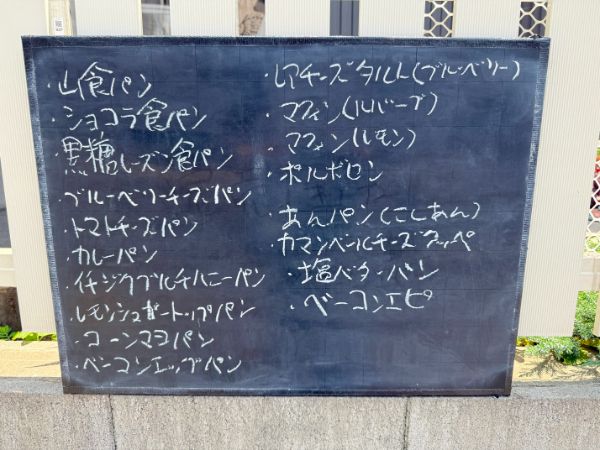 ・山食パン
・ショコラ食パン
・黒糖レーズン食パン
・ブルーベリーチーズパン
・トマトチーズパン
・カレーパン
・イチジクブルチハニーパン
・レモンシュガートップパン
・コーンマヨパン
・ベーコンエッグパン
・レアチーズタルト(ブルーベリー)
・マフィン(ルバーブ)
・マフィン(レモン)
・ポルボロン
・あんパン(こしあん)
カマンベールチーズクッペ
・塩バターパン
・ベーコンエピ